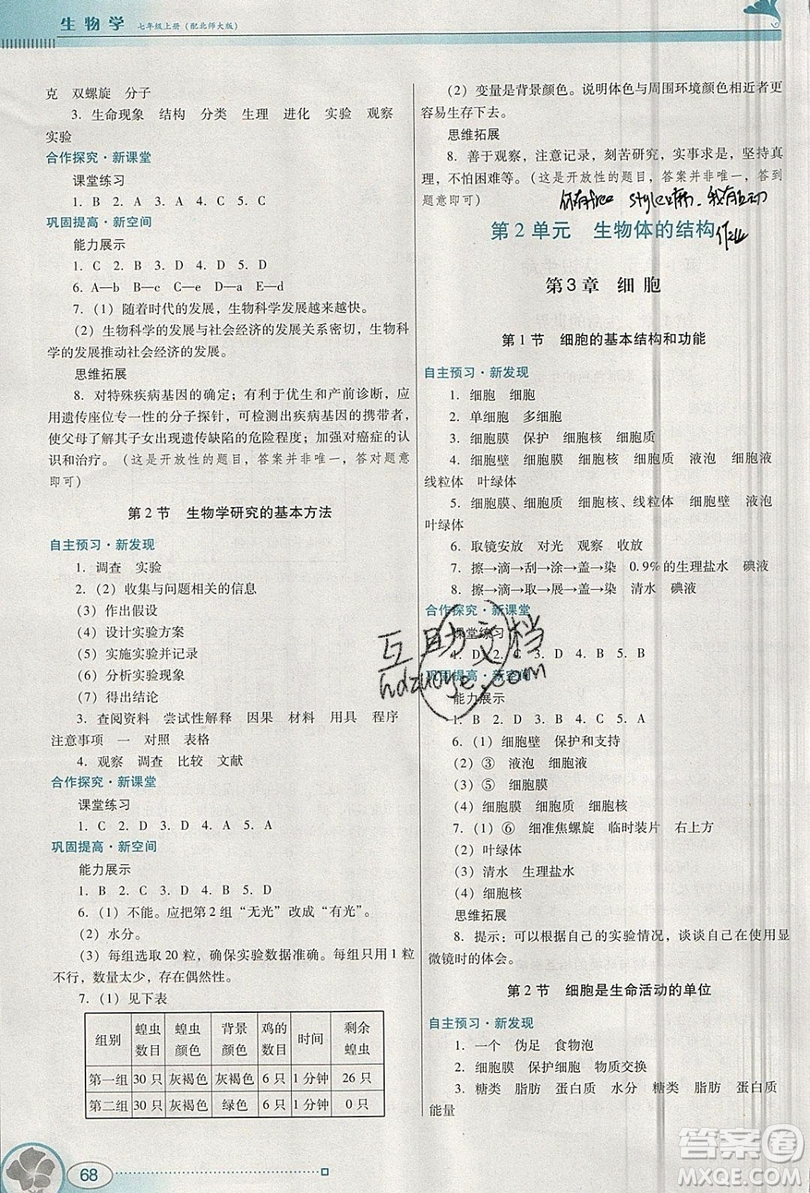 生物学 七年级上册（配北师大版）
克 双螺旋 分子
3. 生命现象 结构 分类 生理 进化 实验 观察
实验
合作探究·新课堂
课堂练习
1. B 2. D 3. A 4. C 5. C
巩固提高·新空间
能力展示
1. C 2. B 3. D 4. D 5. B
6. A—b B—c C—d D—e E—a
7. （1）随着时代的发展，生物科学发展越来越快。
（2）生物科学的发展与社会经济的发展关系密切，生物科
学的发展推动社会经济的发展。
思维拓展
8. 对特殊疾病基因的确定；有利于优生和产前诊断，应
用遗传座位专一性的分子探针，可检测出疾病基因的携带者，
使父母了解其子女出现遗传缺陷的危险程度；加强对癌症的认
识和治疗。（这是开放性的题目，答案并非唯一，答对题意
即可）
第 2 节 生物学研究的基本方法
自主预习·新发现
1. 调查 实验
2. （2）收集与问题相关的信息
（3）作出假设
（4）设计实验方案
（5）实施实验并记录
（6）分析实验现象
（7）得出结论
3. 查阅资料 尝试性解释 因果 材料 用具 程序
注意事项 一 对照 表格
4. 观察 调查 比较 文献
合作探究·新课堂
课堂练习
1. C 2. D 3. D 4. A 5. A
巩固提高·新空间
能力展示
1. B 2. D 3. C 4. A 5. B
6. （1）不能。应把第 2 组“无光”改成“有光”。
（2）水分。
（3）每组选取 20 粒，确保实验数据准确。每组只用 1 粒
不行，数量太少，存在偶然性。
7. （1）见下表
组别 蝗虫数目 蝗虫颜色 背景颜色 鸡的数目 时间 剩余蝗虫
第一组 30 只 灰褐色 灰褐色 6 只 1 分钟 26 只
第二组 30 只 灰褐色 绿色 6 只 1 分钟 0 只
68
（2）变量是背景颜色。说明体色与周围环境颜色一致时更
容易生存下去。
思维拓展
8. 善于观察，注意记录，刻苦研究，实事求是，坚持真
理，不怕困难等。（这是开放性的题目，答案并非唯一，答到
题意即可）
第 2 单元 生物体的结构
第 3 章 细 胞
第 1 节 细胞的基本结构和功能
自主预习·新发现
1. 细胞 细胞
2. 单细胞 多细胞
3. 细胞膜 保护 细胞核 细胞质
4. 细胞壁 细胞膜 细胞核 细胞质 液泡 细胞液
线粒体 叶绿体
5. 细胞膜、细胞质 细胞核、线粒体 细胞壁 液泡
叶绿体
6. 取镜安放 对光 观察 收放
7. 擦→滴→刮→涂→盖→染 0.9%的生理盐水 碘液
8. 擦→滴→取→展→盖→染 清水 碘液
合作探究·新课堂
课堂练习
1. D 2. C 3. D 4. B 5. A
巩固提高·新空间
能力展示
1. B 2. A 3. C 4. D 5. D
6. （1）细胞壁 保护和支持
（2）③ 液泡 细胞液
（3）⑤ 细胞膜
（4）细胞膜 细胞质 细胞核
7. （1）⑥ 细准焦螺旋 临时装片 右上方
（2）叶绿体
（3）清水 生理盐水
（4）细胞核
思维拓展
8. 提示：可以根据自己的实验情况，谈谈自己在使用显
微镜时的体会。
第 2 节 细胞是生命活动的单位
自主预习·新发现
1. 一个 伪足 食物泡
2. 细胞膜 保护细胞 物质交换
3. 糖类 脂肪 蛋白质 水分 糖类 脂肪 蛋白质
能量
互助文档
hdzuoye.com
答案圈
MXQE.COM